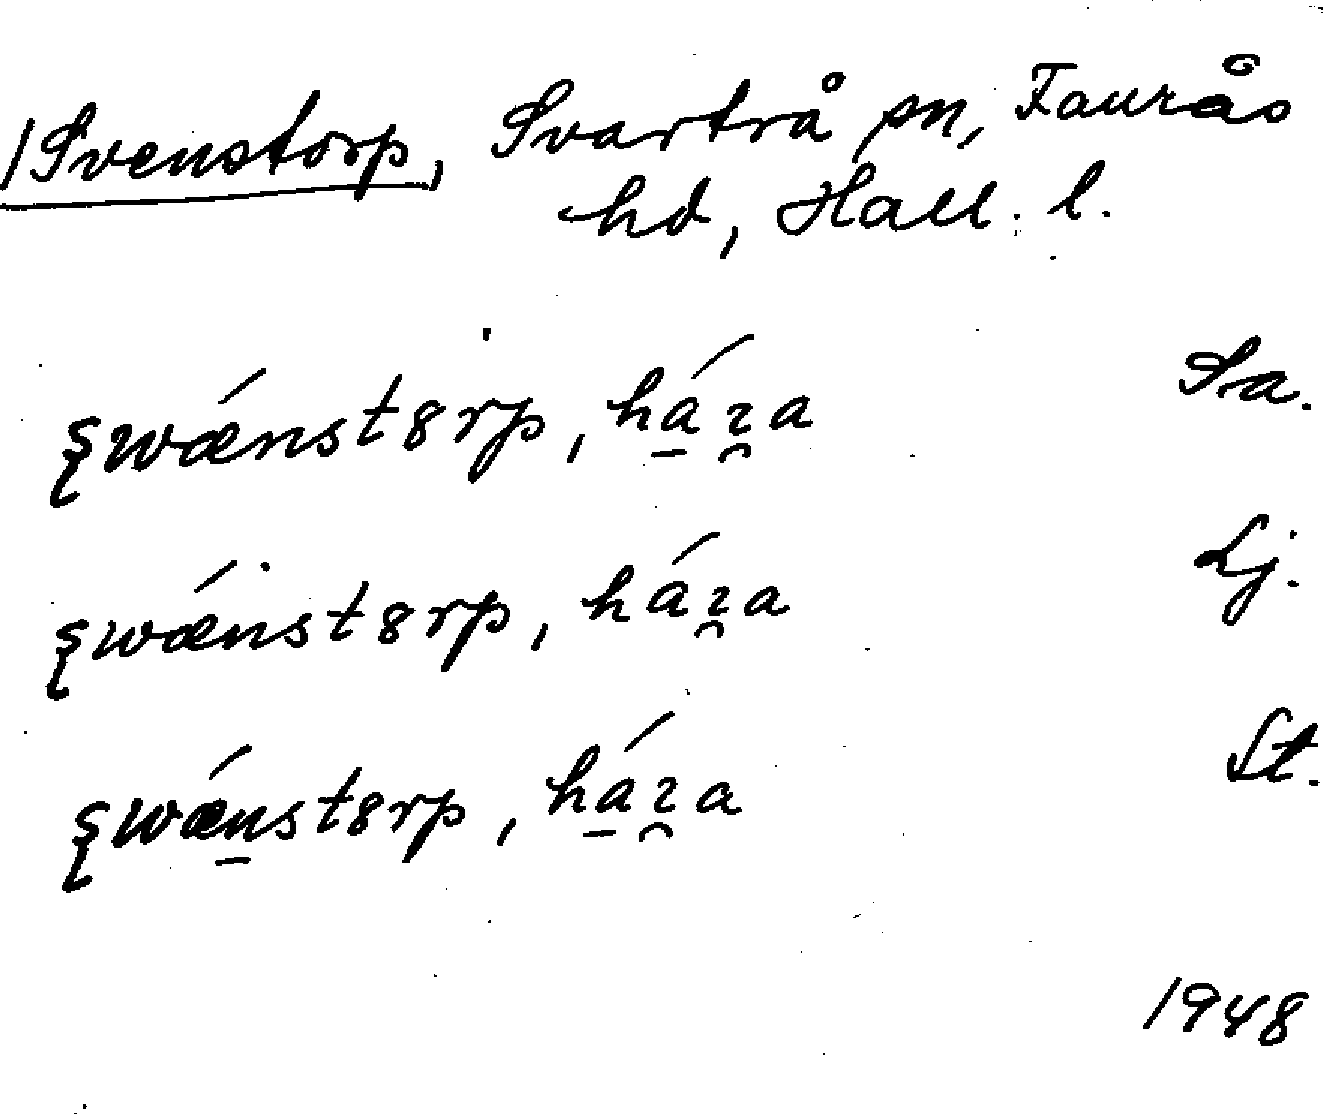 /Svenstorp, Svartrå sn, Faurås
hd, Hall. l.
şwǽnst8rp, há̱ɀ̯a Sa.
şwǽnst8rp, háɀ̯a Lj.
şwǽn̲st8rp, há̱ɀ̯a St.
1948